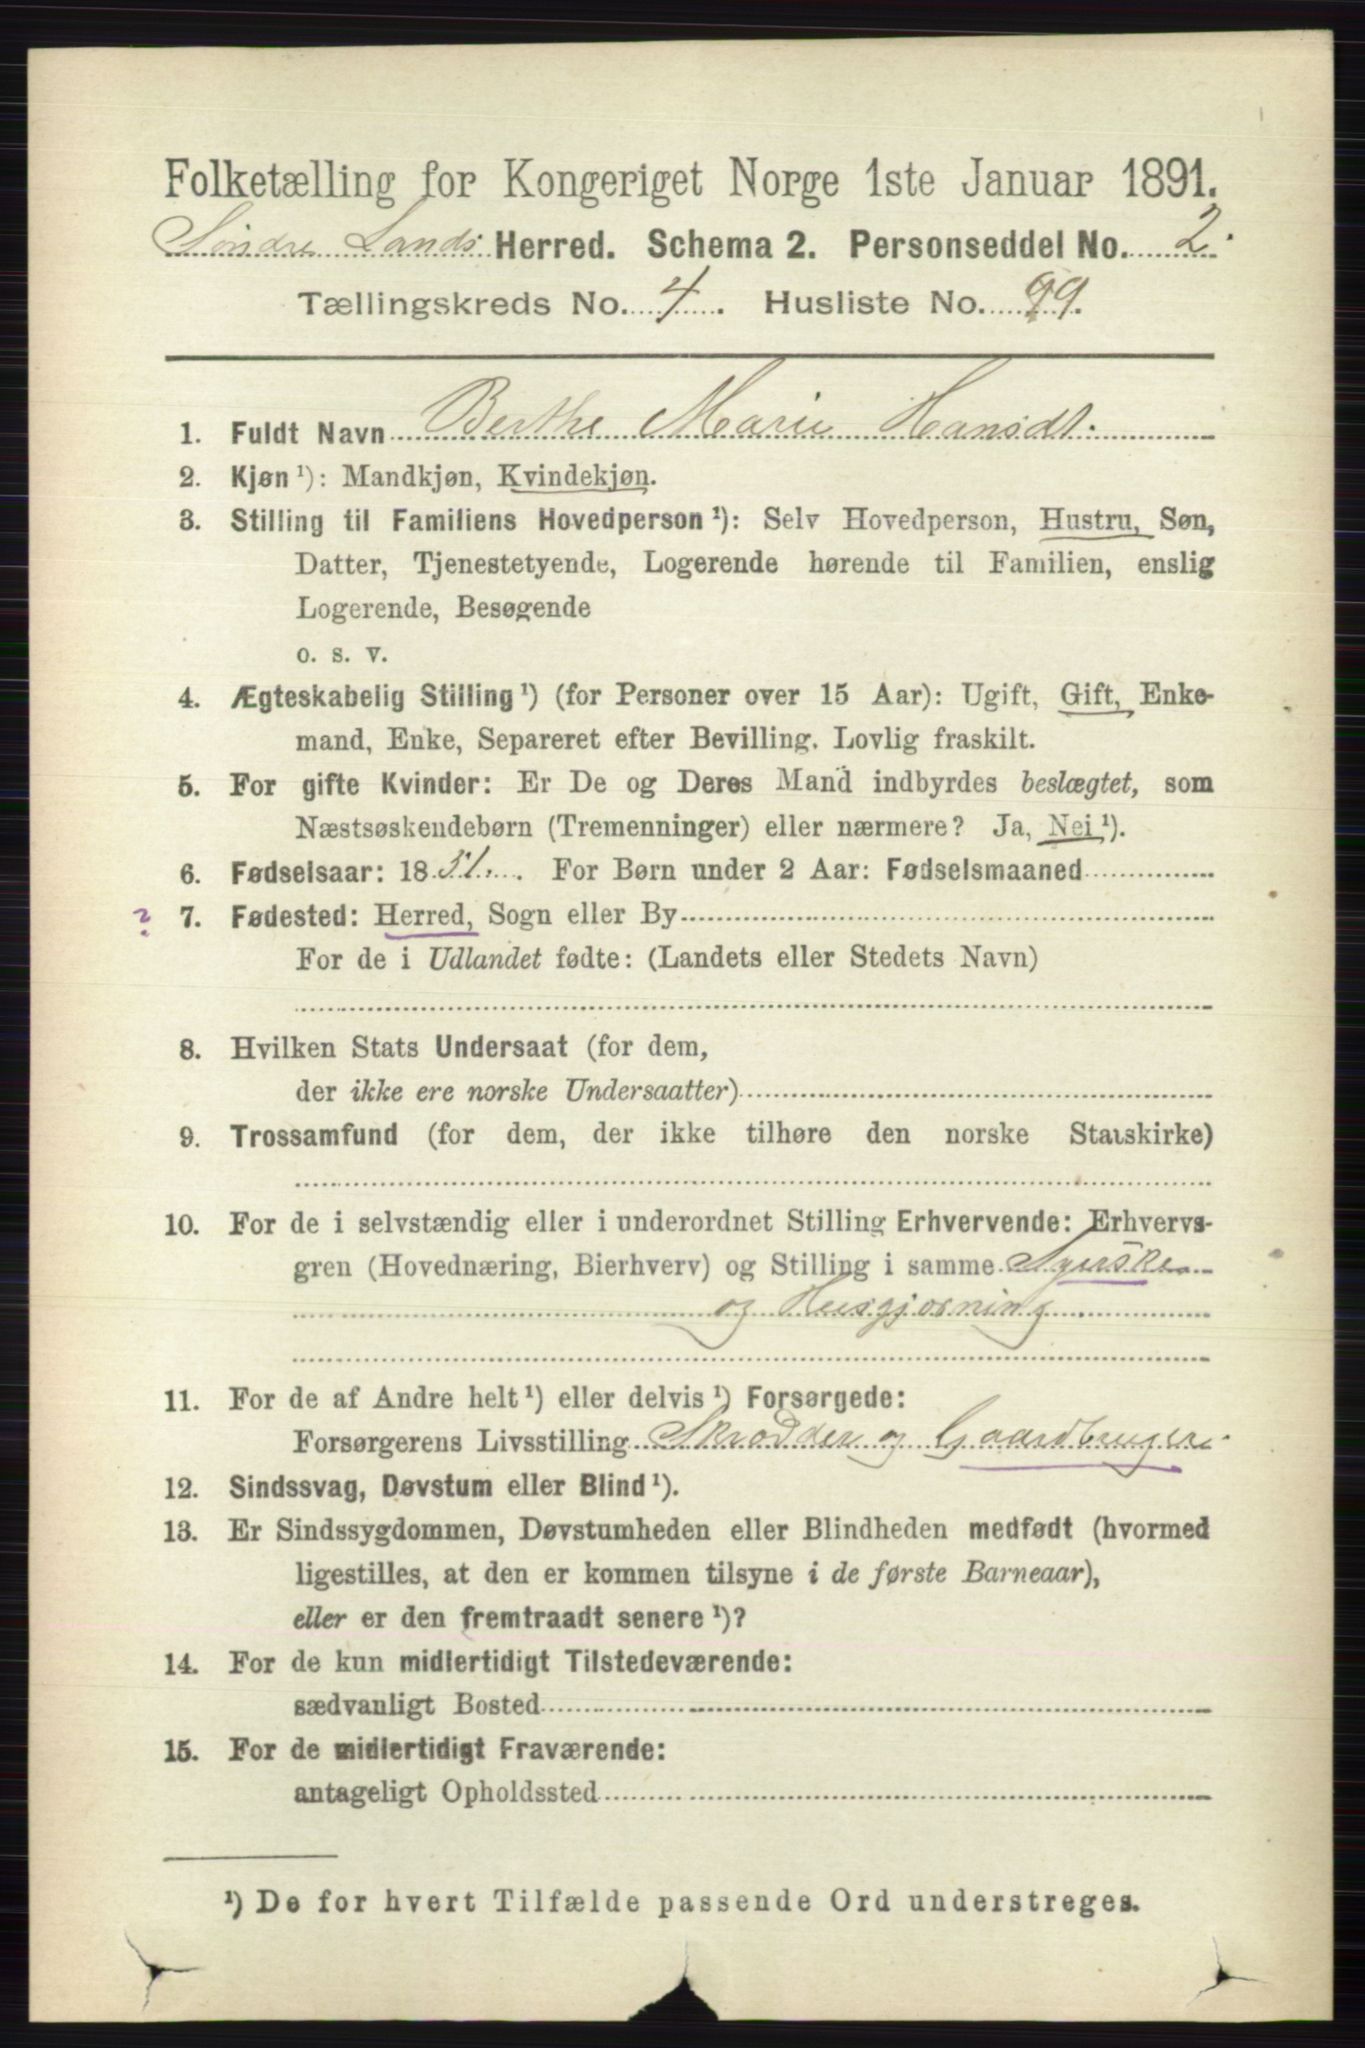 Folketælling for Kongeriget Norge 1ste Januar 1891.
Søndre Lands Herred. Schema 2. Personseddel No. 2.
Tællingskreds No. 4. Husliste No. 99.
1. Fuldt Navn Berthe Marie Hansdt.
2. Kjøn ¹): Mandkjøn, Kvindekjøn.
3. Stilling til Familiens Hovedperson ¹): Selv Hovedperson, Hustru, Søn,
Datter, Tjenestetyende, Logerende hørende til Familien, enslig
Logerende, Besøgende
o. s. v.
4. Ægteskabelig Stilling ¹) (for Personer over 15 Aar): Ugift, Gift, Enke-
mand, Enke, Separeret efter Bevilling. Lovlig fraskilt.
5. For gifte Kvinder: Er De og Deres Mand indbyrdes beslægtet, som
Næstsøskendebørn (Tremenninger) eller nærmere? Ja, Nei ¹).
6. Fødselsaar: 1851. For Børn under 2 Aar: Fødselsmaaned
? 7. Fødested: Herred, Sogn eller By
For de i Udlandet fødte: (Landets eller Stedets Navn)
8. Hvilken Stats Undersaat (for dem,
der ikke ere norske Undersaatter)
9. Trossamfund (for dem, der ikke tilhøre den norske Statskirke)
10. For de i selvstændig eller i underordnet Stilling Erhvervende: Erhvervs-
gren (Hovednæring, Bierhverv) og Stilling i samme Syerske
og Husgjørning
11. For de af Andre helt ¹) eller delvis ¹) Forsørgede:
Forsørgerens Livsstilling Skrædder og Gaardbruger.
12. Sindssvag, Døvstum eller Blind ¹).
13. Er Sindssygdommen, Døvstumheden eller Blindheden medfødt (hvormed
ligestilles, at den er kommen tilsyne i de første Barneaar),
eller er den fremtraadt senere ¹)?
14. For de kun midlertidigt Tilstedeværende:
sædvanligt Bosted
15. For de midlertidigt Fraværende:
antageligt Opholdssted
¹) De for hvert Tilfælde passende Ord understreges.